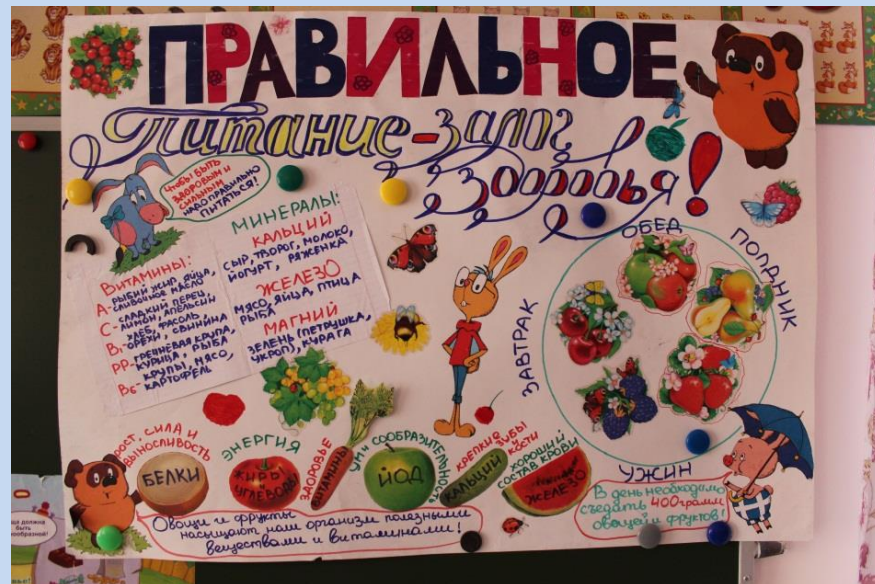 ПРАВИЛЬНОЕ
Питание-залог
здоровья!
Чтобы быть
здоровым и
сильным
надо правильно
питаться!
Витамины:
А- рыбий жир, яйца,
сливочное масло
С- сладкий перец,
лимон, апельсин
В1- хлеб, фасоль,
орехи, свинина
РР- гречневая крупа,
курица, рыба
В6- крупы, мясо,
картофель
МИНЕРАЛЫ:
КАЛЬЦИЙ
сыр, творог, молоко,
йогурт, ряженка
ЖЕЛЕЗО
мясо, яйца, птица
рыба
МАГНИЙ
зелень (петрушка,
укроп), курага
ЗАВТРАК
ОБЕД
ПОЛДНИК
УЖИН
рост, сила и
выносливость
БЕЛКИ
ЭНЕРГИЯ
ЖИРЫ
УГЛЕВОДЫ
ЗДОРОВЬЕ
ВИТАМИНЫ
УМ и СООБРАЗИТЕЛЬНОСТЬ
ЙОД
крепкие зубы
кости
КАЛЬЦИЙ
хороший
состав крови
ЖЕЛЕЗО
Овощи и фрукты
насыщают нам организм полезными
веществами и витаминами!
В день необходимо
съедать 400 грамм
овощей и фруктов!
ца должна
быть